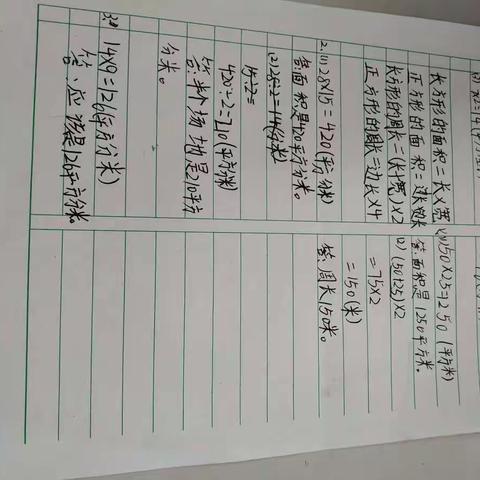 长方形的面积=长×宽
正方形的面积=边长×边长
长方形的周长=(长+宽)×2
正方形的周长=边长×4
2.(1)28×15=420(平方米)
答:面积是420平方米。
(2)28÷2=14(分米)
15÷2=
420÷2=210(平方米)
答:半个场地是210平方
分米。
14×9=126(平方分米)
答:应该是126平方分米。
(1)50×25=1250(平方米)
答:面积是1250平方米。
(2)(50+25)×2
=75×2
=150(米)
答:周长150米。